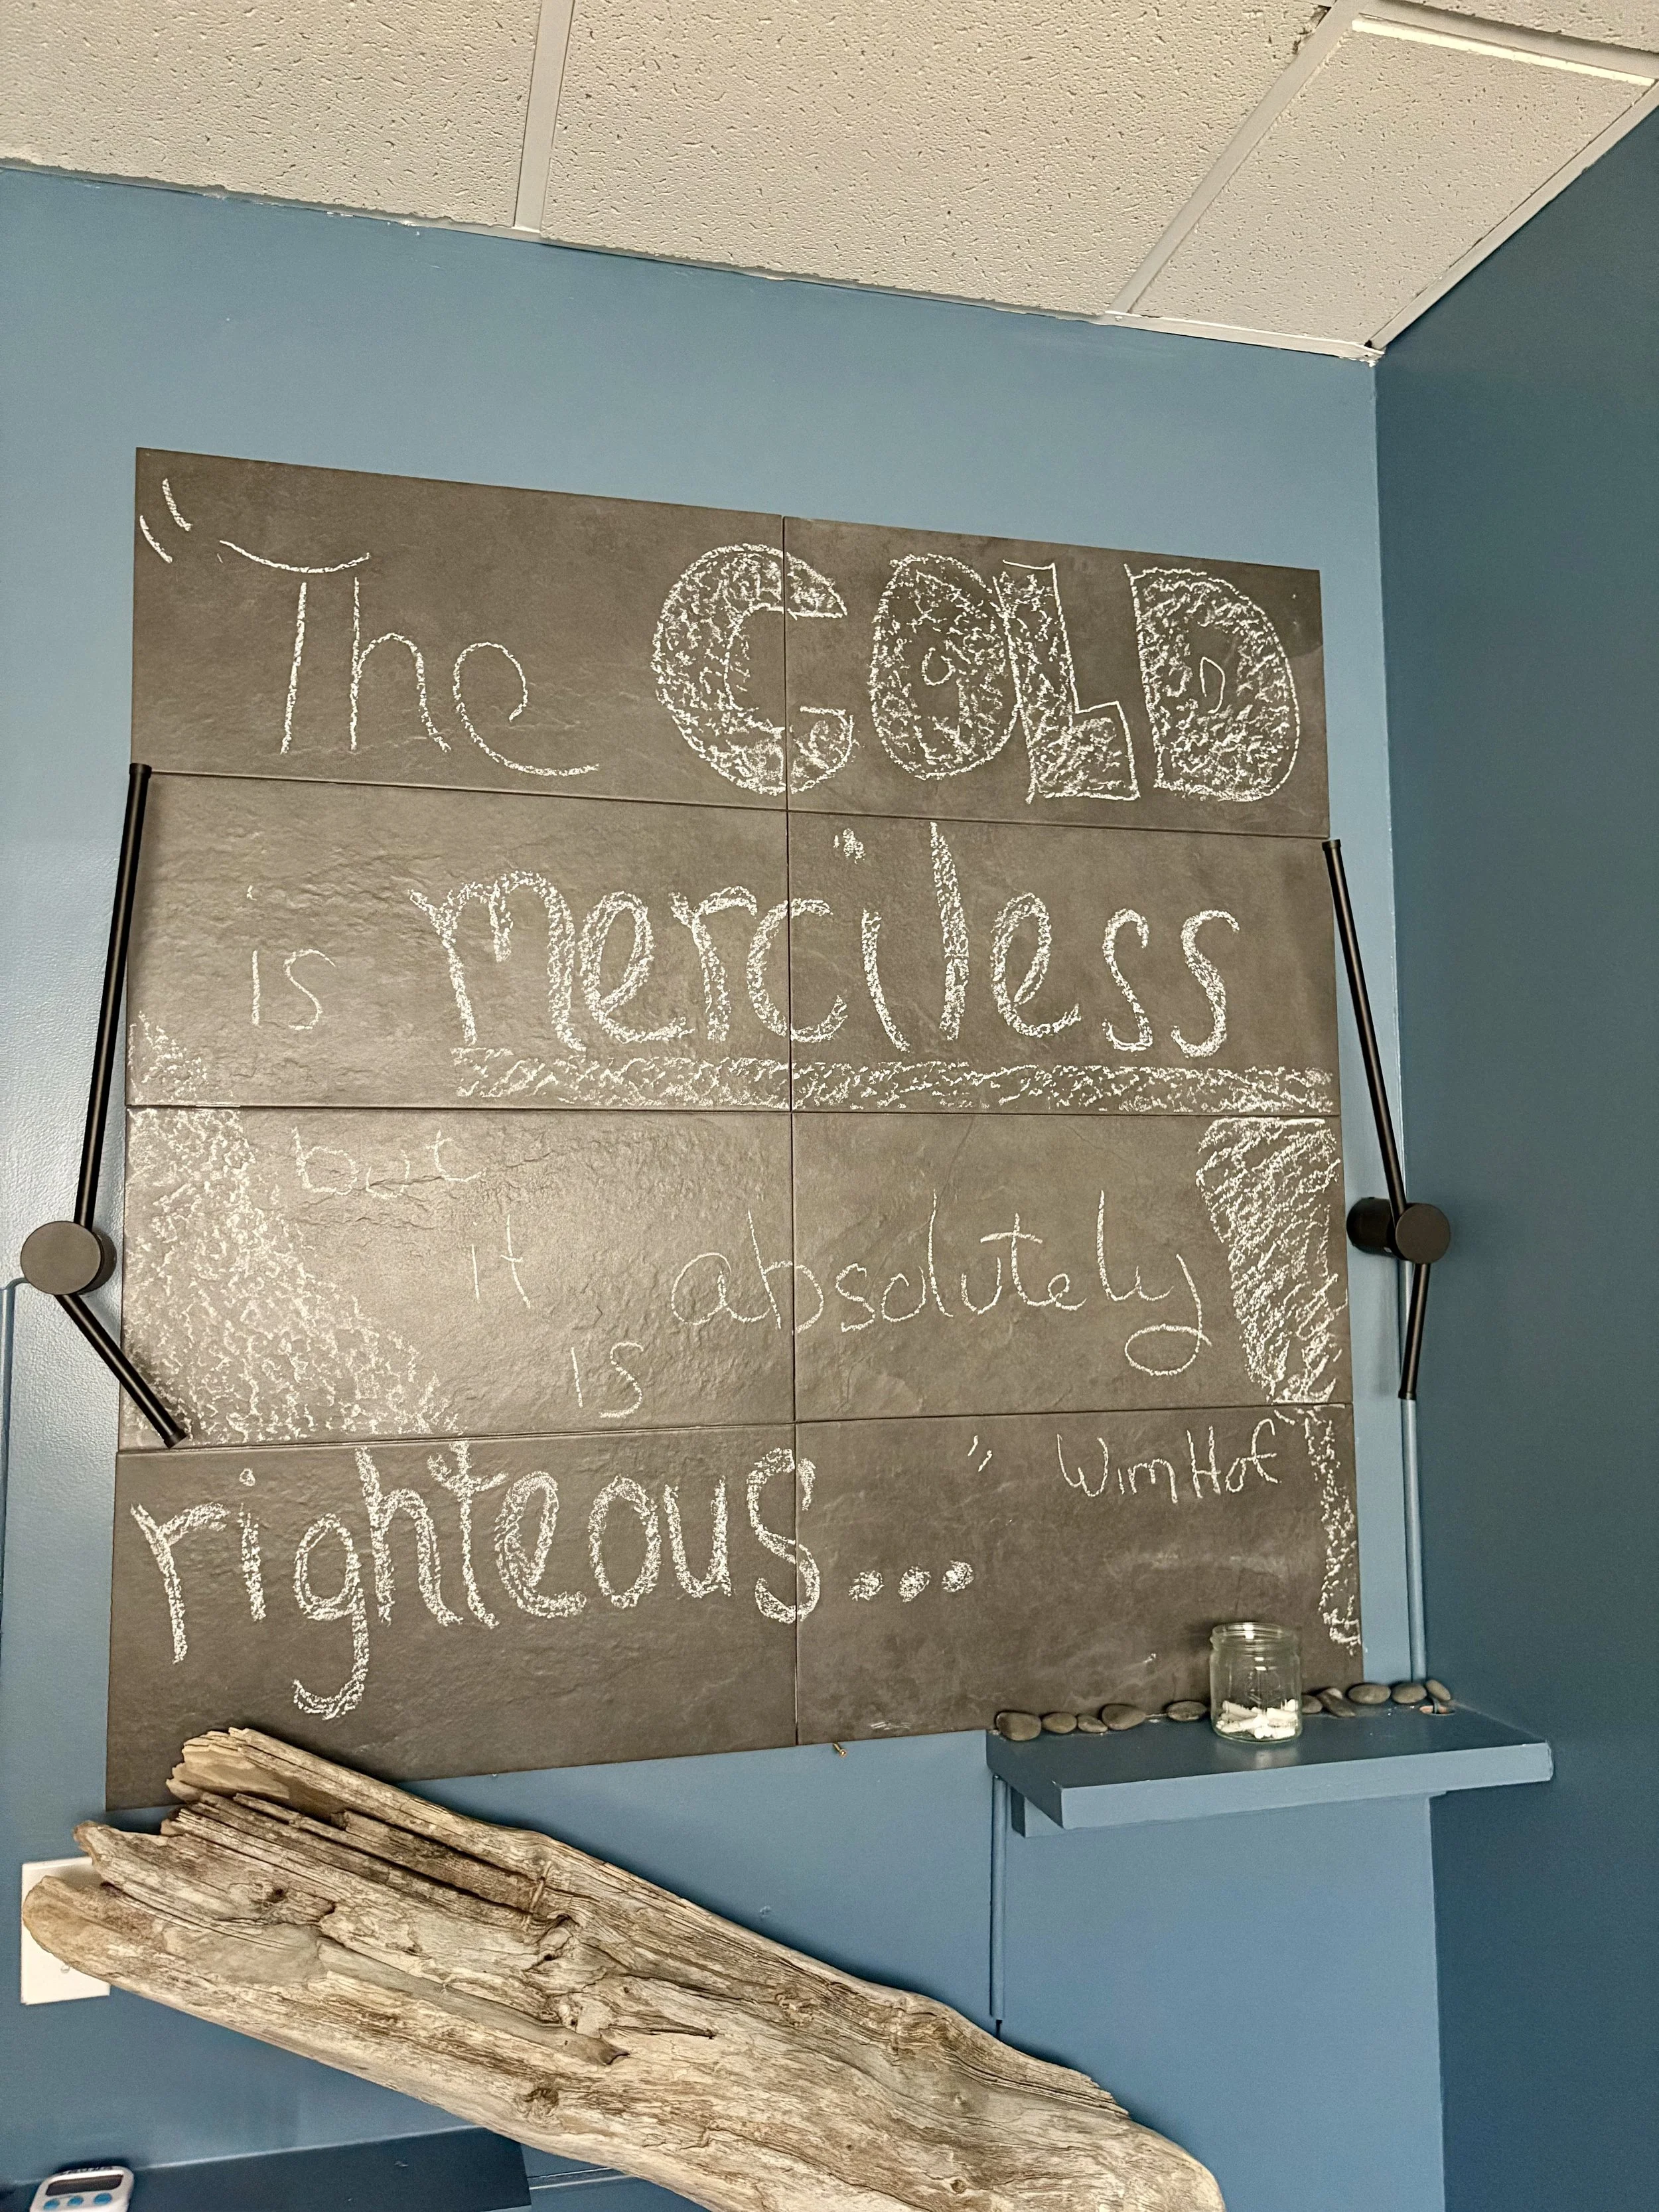 "The COLD
is merciless
but
it absolutely
is
righteous..." Wim Hof